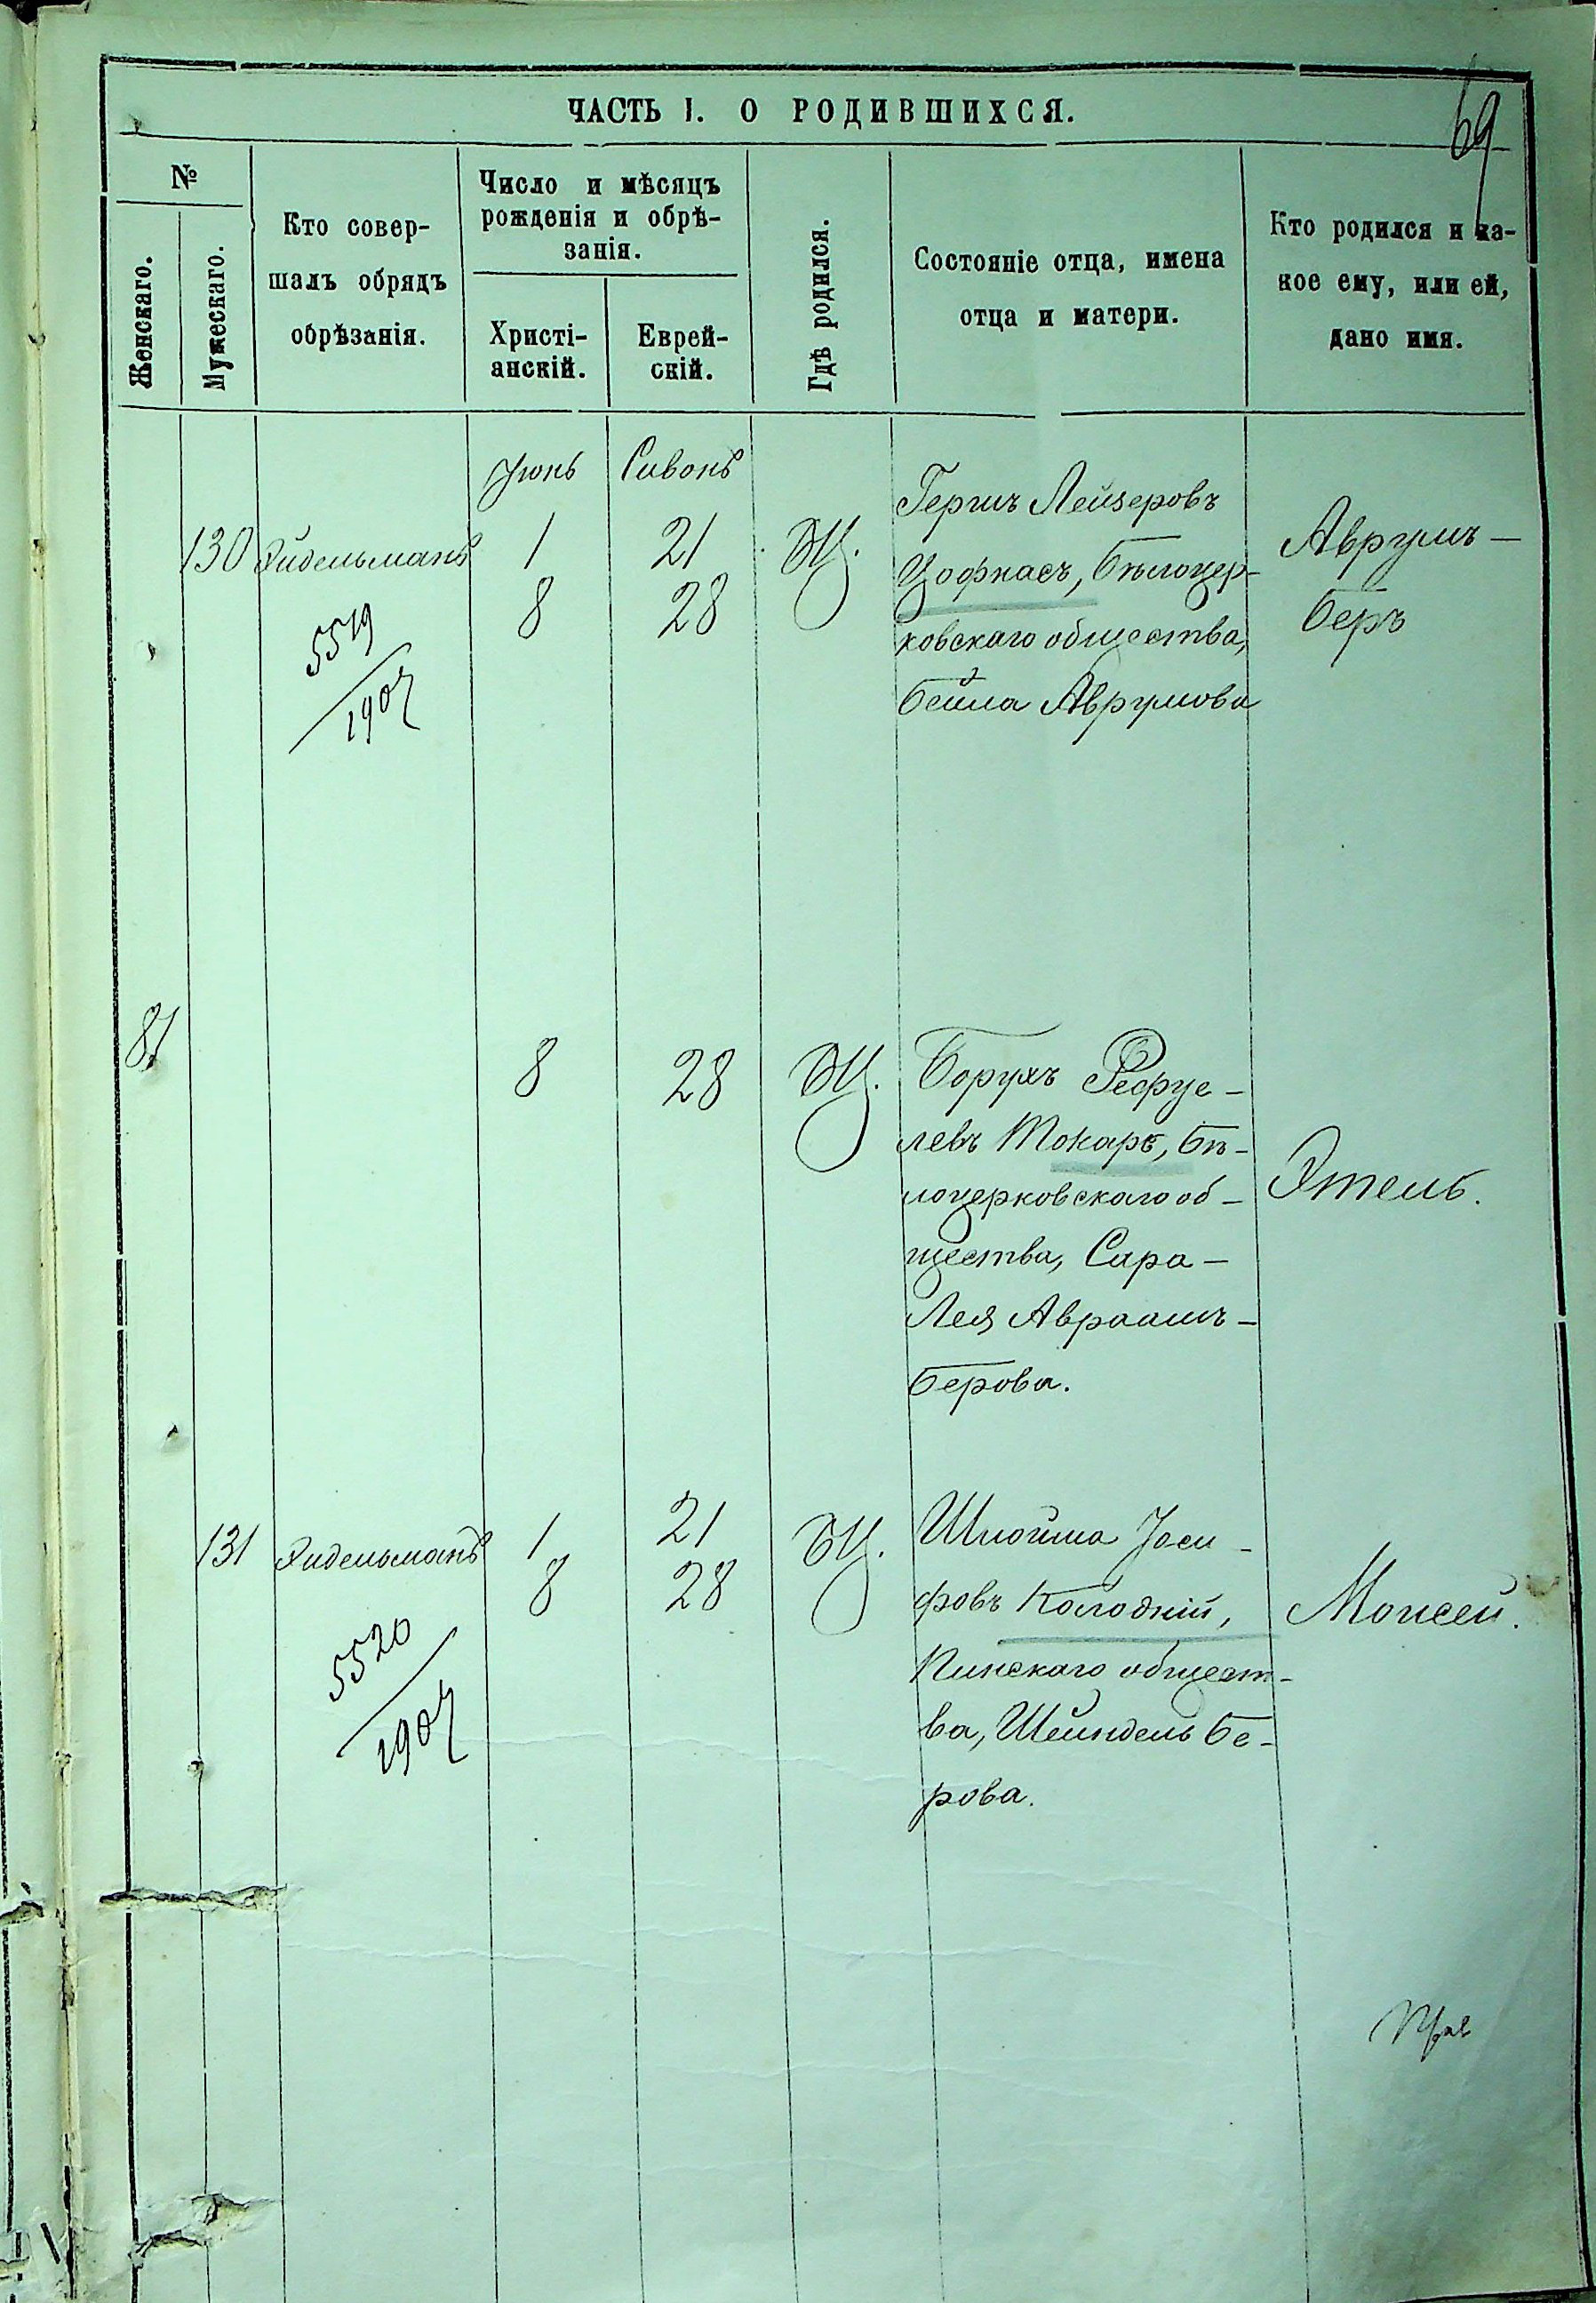 ЧАСТЬ I. О РОДИВШИХСЯ.
69
№
Женскаго.
Мужескаго.
Кто совер-
шалъ обрядъ
обрѣзанія.
Число и мѣсяцъ
рожденія и обрѣ-
занія.
Христі-
анскій.
Еврей-
скій.
Гдѣ родился.
Состояніе отца, имена
отца и матери.
Кто родился и ка-
кое ему, или ей,
дано имя.
Іюнь Сивонъ
130 Эйдельманъ 1 21 БЦ.
8 28
5519
1907
Гершъ Лейзеровъ
Цофнасъ, Бѣлоцер-
ковскаго общества,
Бейла Аврумова
Аврумъ-
Беръ
81 8 28 БЦ.
Борухъ Рефуе-
левъ Токарь, Бѣ-
лоцерковскаго об-
щества, Сара-
Лея Авраамъ-
Берова.
Этель.
131 Эйдельманъ 1 21 БЦ.
8 28
5520
1907
Шлойма Іоси-
фовъ Колодній,
Пинскаго общест-
ва, Шейндель Бе-
рова.
Моисей.